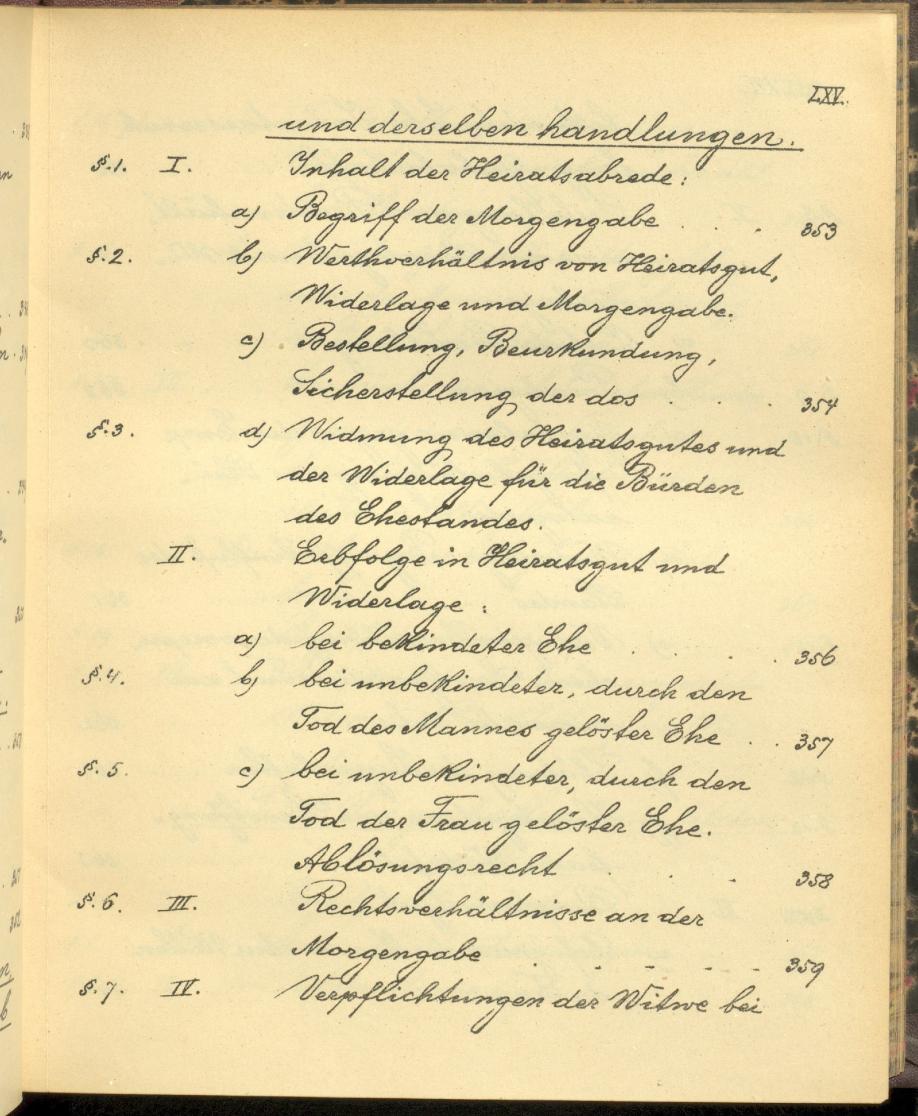 LXV.
und derselben handlungen.
§.1. I. Inhalt der Heiratsabrede:
a) Begriff der Morgengabe . . . 353
§.2. b) Werthverhältnis von Heiratsgut,
Widerlage und Morgengabe.
c) Bestellung, Beurkundung,
Sicherstellung der dos . . . 354
§.3. d) Widmung des Heiratsgutes und
der Widerlage für die Bürden
des Ehestandes.
II. Erbfolge in Heiratsgut und
Widerlage:
a) bei bekindeter Ehe . . . . 356
§.4. b) bei unbekindeter, durch den
Tod des Mannes gelöster Ehe . . 357
§.5. c) bei unbekindeter, durch den
Tod der Frau gelöster Ehe.
Ablösungsrecht . . . 358
§.6. III. Rechtsverhältnisse an der
Morgengabe . . . . . . 359
§.7. IV. Verpflichtungen der Witwe bei